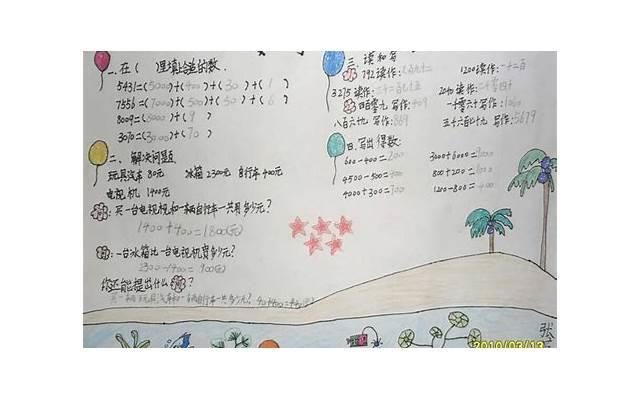 一、在( )里填上合适的数.
5431=(5000)+(400)+(30)+(1)
7556=(7000)+(500)+(50)+(6)
8009=(8000)+(9)
3070=(3000)+(70)
二、解决问题
玩具汽车 80元 冰箱 2300元 自行车 400元
电视机 1400元
买一台电视机和一辆自行车一共是多少元?
1400+400=1800(元)
一台冰箱比一台电视机贵多少元?
2300-1400=900(元)
你还能提出什么
买一辆玩具汽车和一辆自行车一共多少元?
三、读和写
792读作: 七百九十二 1200读作: 一千二百
3275读作: 2040读作: 二千零四十
四百零九 写作: 409 一千零六十 写作: 1060
八百六十九 写作: 869 五千六百七十九 写作: 5679
四、写出得数:
600-400=200 3000+6000=9000
4500-500=4000 800+200=1000
4000+300= 1200-800=400
张
2010/03/13